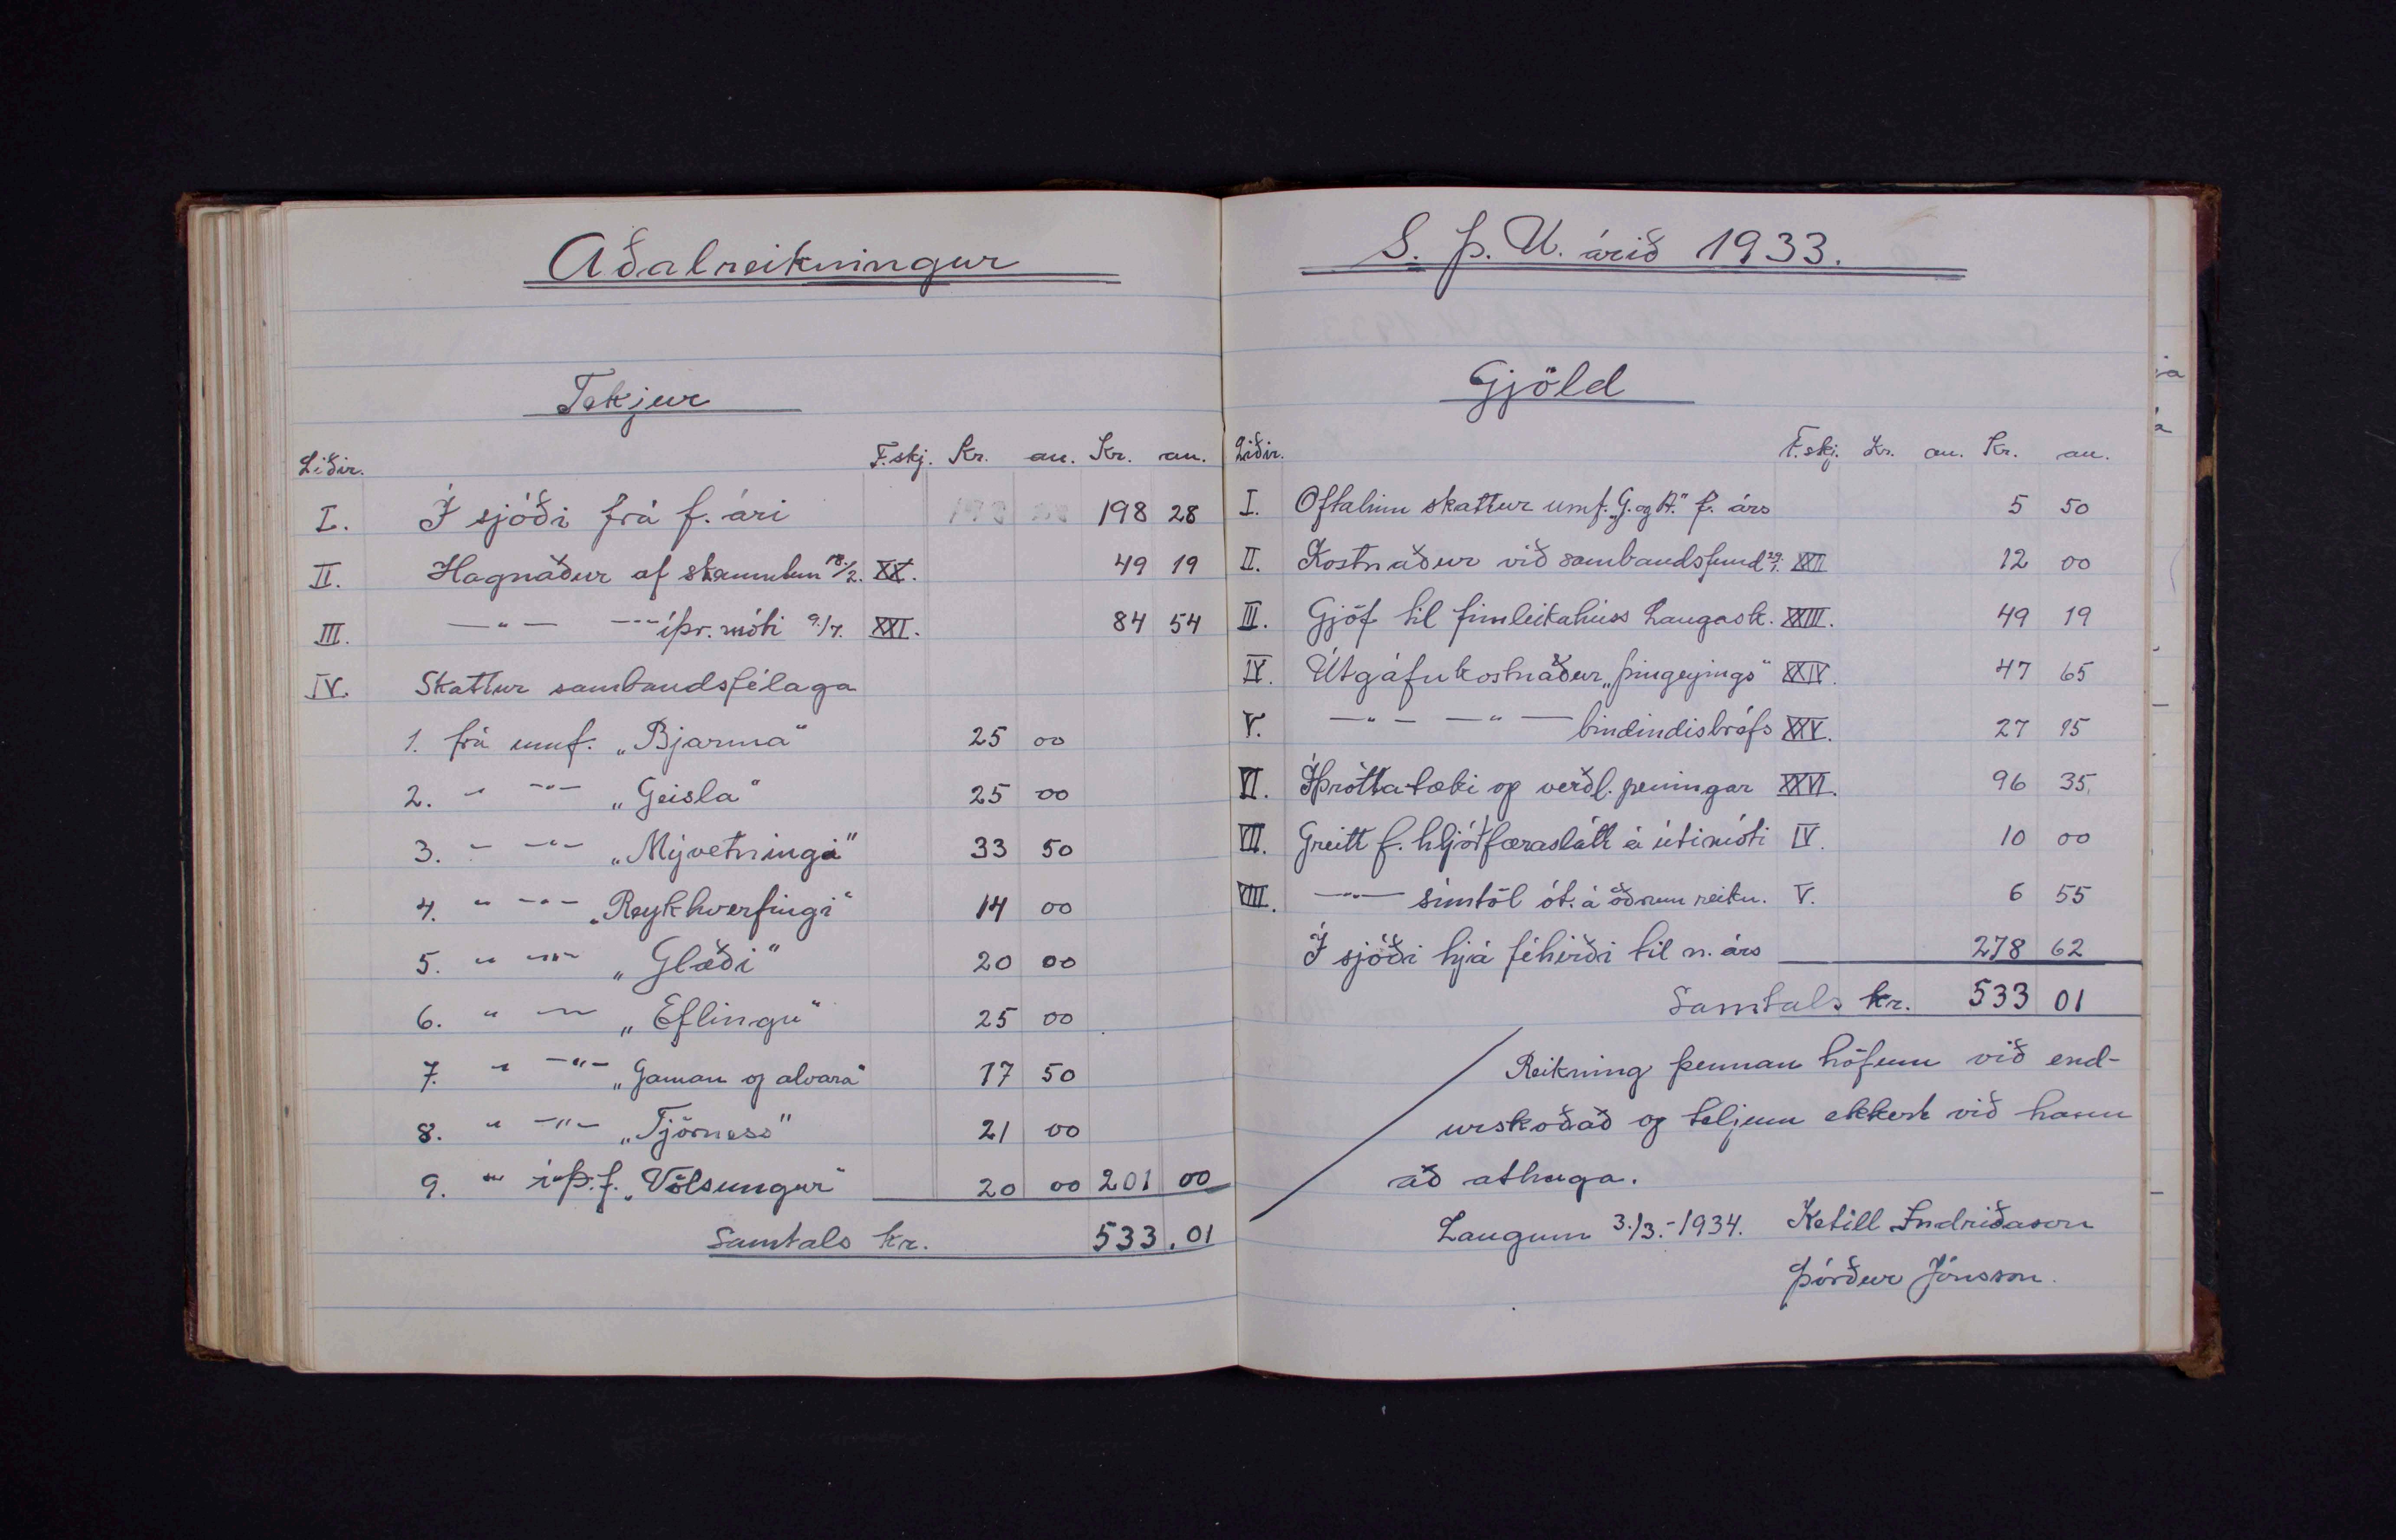 Aðalreikningur
Tekjur
Liðir. F.skj. Kr. au. Kr. au.
I. Í sjóði frá f. ári 198 28
II. Hagnaður af skemmtun 18/2. XX. 49 19
III. — " — — " — íþr. móti 9/7. XXI. 84 54
IV. Skattur sambandsfélaga
1. frá umf. „Bjarma" 25 00
2. " — " — „Geisla" 25 00
3. " — " — „Mývetningi" 33 50
4. " — " — „Reykhverfingi" 14 00
5. " — " — „Glæði" 20 00
6. " — " — „Eflingu" 25 00
7. " — " — „Gaman og alvara" 17 50
8. " — " — „Tjörness" 21 00
9. " íþ.f. „Völsungur" 20 00 201 00
Samtals kr. 533.01
S. Þ. U. árið 1933.
Gjöld
Liðir. F.skj. Kr. au. Kr. au.
I. Oftalinn skattur umf. „G. og A." f. árs 5 50
II. Kostnaður við sambandsfund 29/1. XXII 12 00
III. Gjöf til fimleikahúss Laugask. XXIII. 49 19
IV. Útgáfukostnaður „Þingeyings" XXIV. 47 65
V. — " — — " — bindindisbréfs XXV. 27 15
VI. Íþróttatæki og verðl. peningar XXVI. 96 35
VII. Greitt f. hljóðfæraslátt á útimóti IV. 10 00
VIII. — " — símtöl ót. á öðrum reikn. V. 6 55
Í sjóði hjá féhirði til n. árs 278 62
Samtals kr. 533 01
Reikning þennan höfum við end-
urskoðað og teljum ekkert við hann
að athuga.
Laugum 3./3.-1934. Ketill Indriðason
Þórður Jónsson.